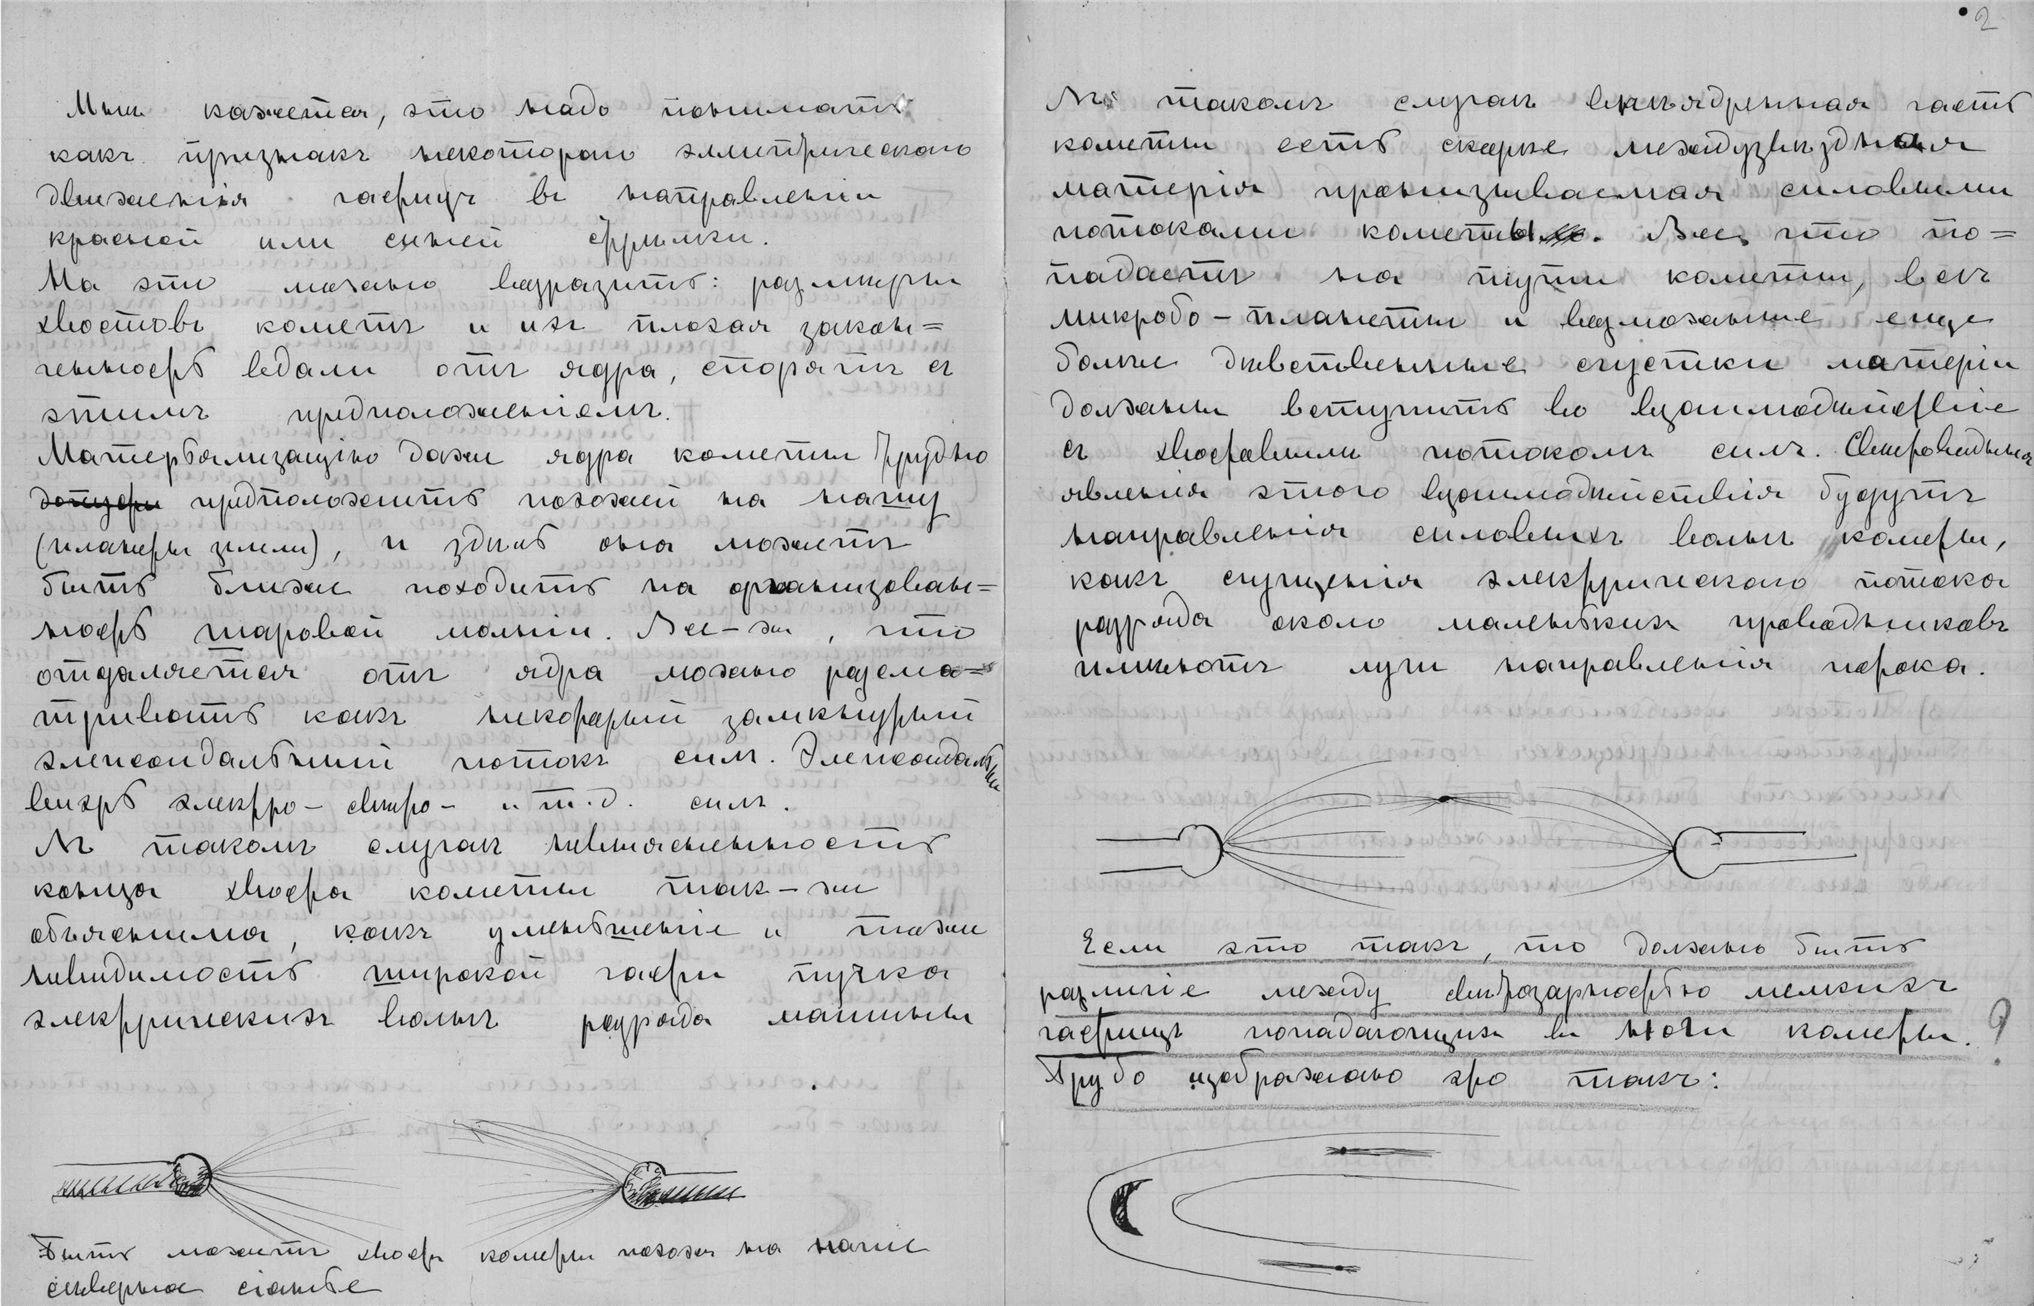 Мнѣ кажется, это надо понимать
какъ признакъ некоторого эллитрического
движенія частицъ въ направленіи
красной или синей стрѣлки.
На это можно возразить: размѣры
хвостовъ кометъ и ихъ плохая закон=
ченность вдали отъ ядра, спорятъ съ
этимъ предположеніемъ.
Матерьялизацію даже ядра кометы трудно
предположить похожей на нашу
(планеты земли), и здѣсь она можетъ
быть ближе походить на организован=
ность шаровой молніи. Все-же, что
отдаляется отъ ядра можно разсма=
тривать какъ некоторый замкнутый
элепсоидальный потокъ силъ. Элепсоидальный
вихрь электро- свѣто- и т.д. силъ.
Въ такомъ случаѣ невыясненность
конца хвоста кометы так-же
объяснима, какъ уменьшеніе и также
невидимость широкой части пучка
электрическихъ волнъ разряда машины
Быть можетъ хвостъ кометы похожъ на наше
сѣверное сіянье
2
Въ такомъ случаѣ внѣядренная часть
кометы есть скорѣе междузвѣздная
матерія пронизываемая силовыми
потоками кометы. Все, что по=
падаетъ на пути кометы, всѣ
микробо-планеты и возможные еще
болѣе дѣвственные сгустки матеріи
должны вступить во взаимодѣйствіе
съ хвостовымъ потокомъ силъ. Свѣтовидныя
явленія этого взаимодѣйствія будутъ
направленія силовыхъ волнъ кометы,
какъ сгущенія электрического потока
разряда около маленькихъ проводниковъ
имѣютъ лучи направленія потока.
Если это такъ, то должно быть
различіе между свѣтозарностью мелкихъ
частицъ попадающихъ въ ноги кометы. ?
Грубо изображаю это такъ: